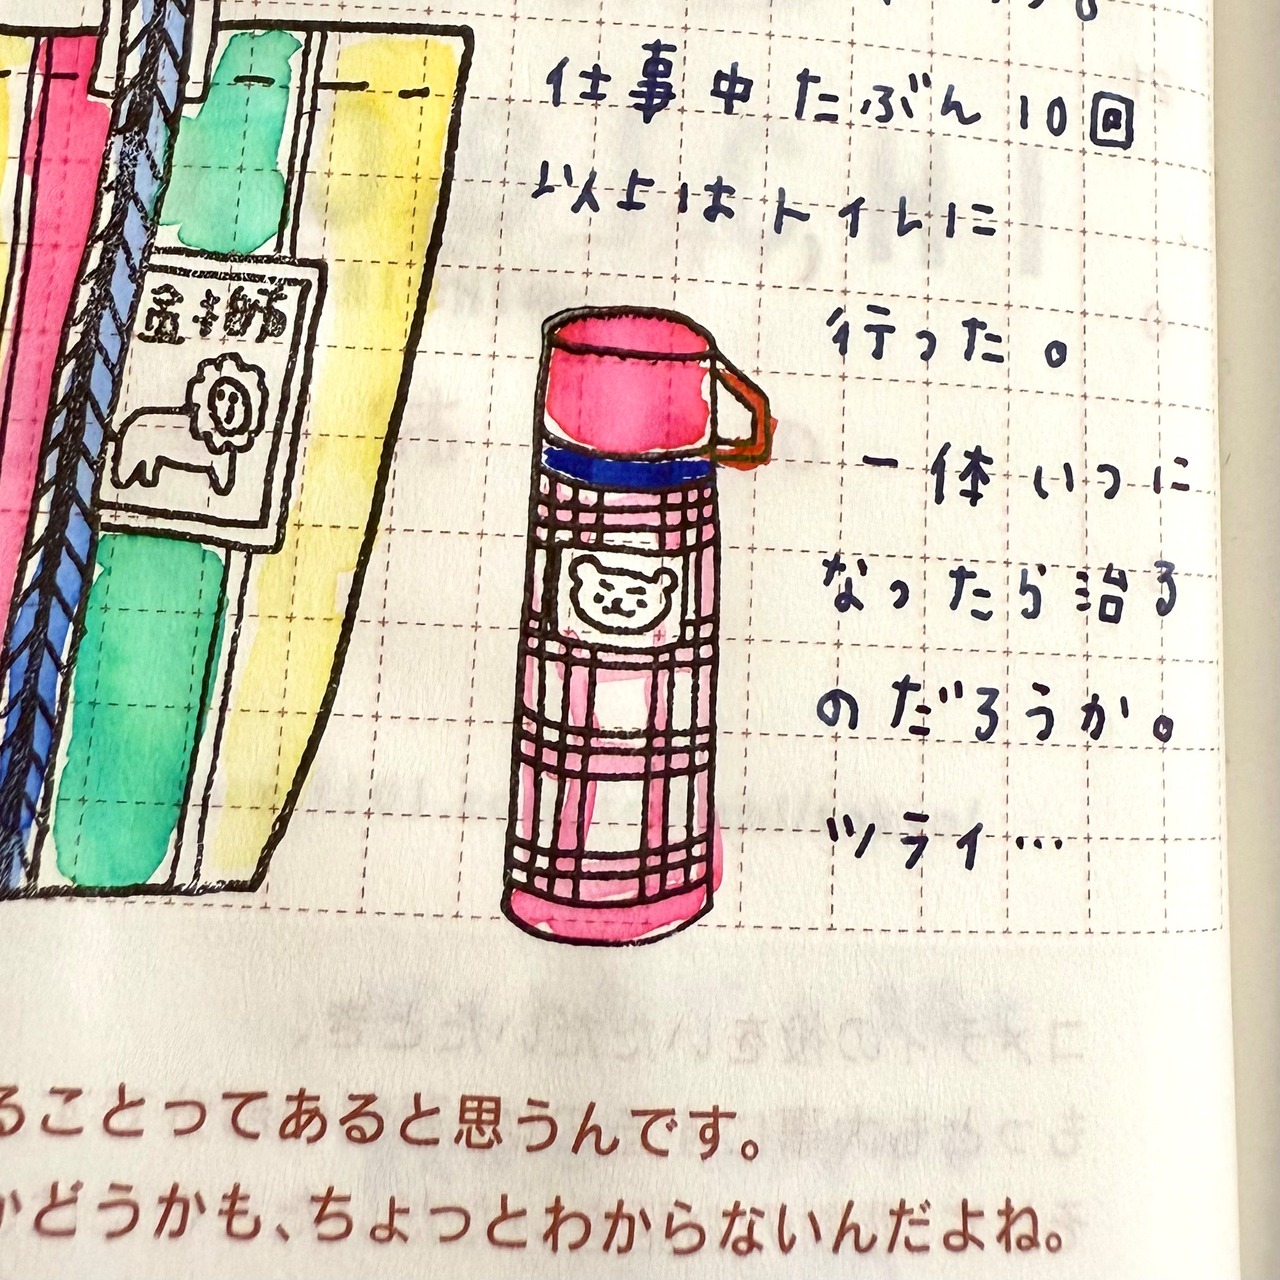 仕事中たぶん10回
以上はトイレに
行った。
一体いつに
なったら治る
のだろうか。
ツライ…
ることってあると思うんです。
かどうかも、ちょっとわからないんだよね。